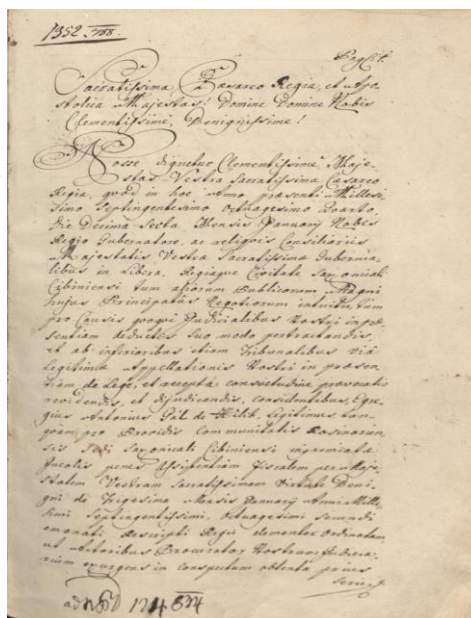 1352. 788.
Sacratissima Cæsareo Regia, et Apo-
stolica Majestas! Domine Domine Nobis
Clementissime, Benignissime!
Nosse dignetur Clementissime Maje-
stas Vestra Sacratissima Cæsareo
Regia, quod in hoc Anno præsenti Millesi-
simo Septingentesimo Octuagesimo Quarto,
Die Decima Sexta Mensis Januarij Nobis
Regio Gubernatore, ac reliquis Consiliariis
Majestatis Vestræ Sacratissimæ Gubernia-
libus in Libera, Regiaque Civitate Saxonicali
Cibiniensi tum aliorum Publicorum Magni
hujus Principatus Negotiorum intuitu, tum
pro Causis quoqve Judicialibus Nostri in præ-
sentiam deductis suo modo pertractandis
et ab inferioribus etiam Tribunalibus via
Legitimæ Appellationis Nostri in præsen-
tiam de Lege, et accepta consvetudine provocatis
revidendis, et dijudicandis, considentibus, Egre-
gius Antonius Gál de Hilib, Legitimus, tan-
qvam pro Providis Communitatis
sis Sedi Saxonicali Cibiniensi ingremiatæ
Incolis penes Assistentiam Fiscalem per Maje-
statem Vestram Sacratissimam Virtute Beni-
gni de Trigesima Mensis Januarij Anni Mille-
simi Septingentesimi, Octuagesimi Secundi
emanati Rescripti Regii clementer ordinatam
ut Actoribus Procurator Nostrum Judicia-
rium exurgens in conspectum obtenta prius
serie